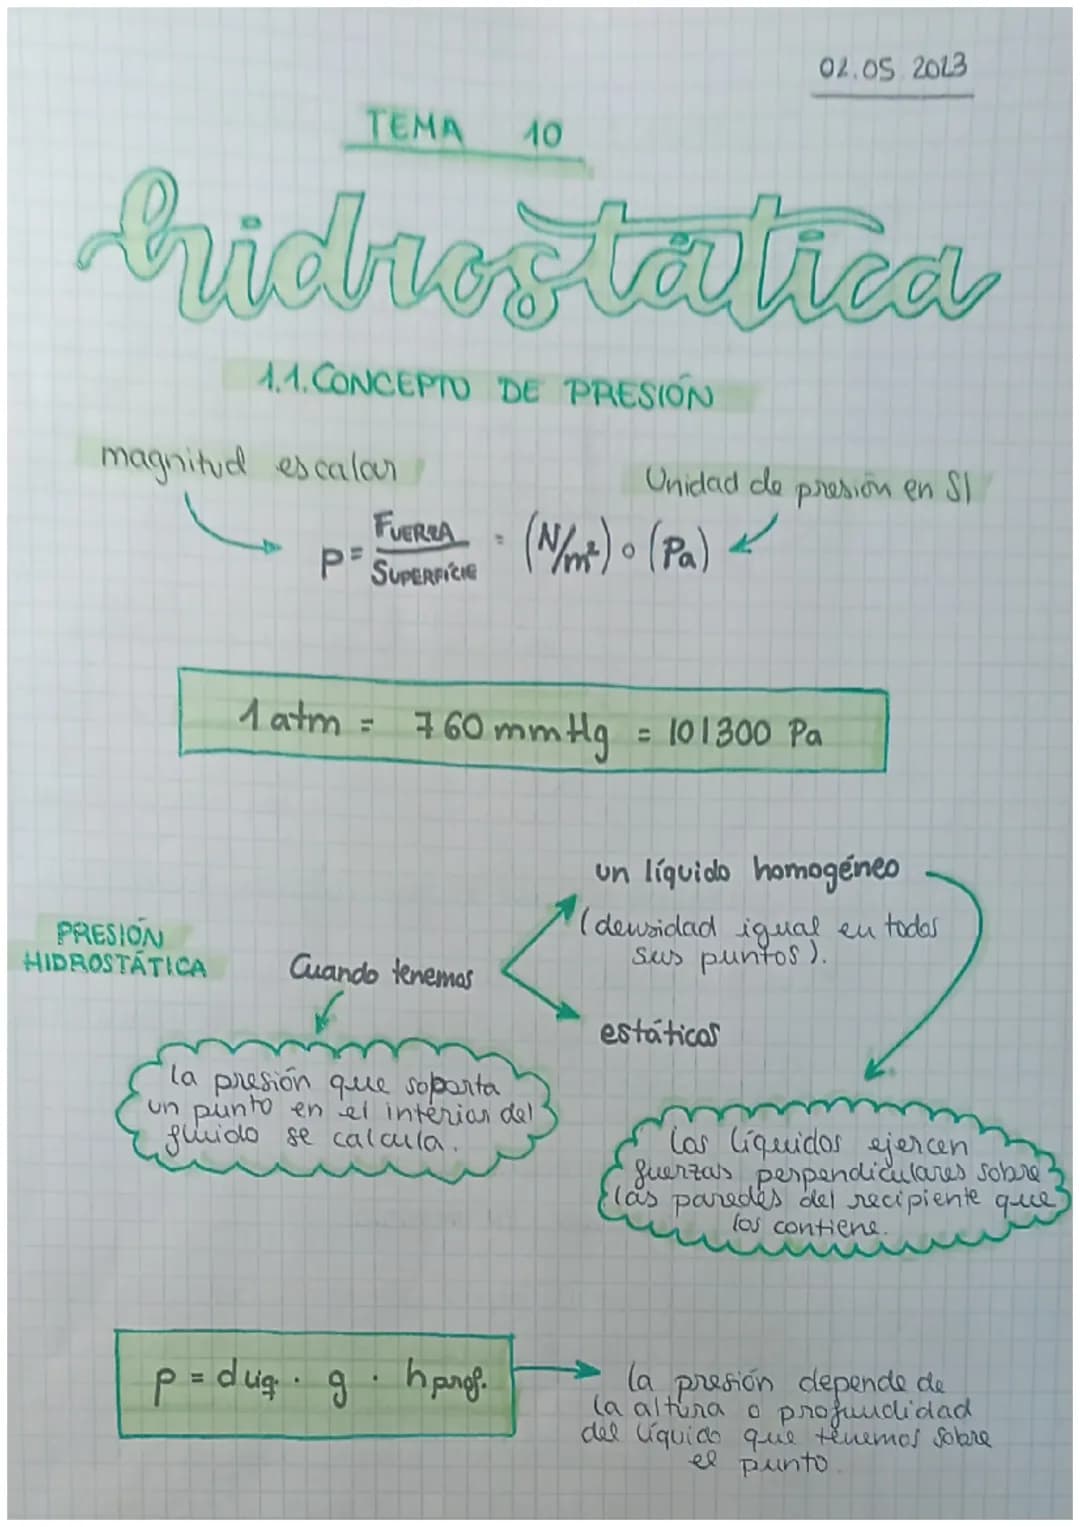 02.05.2023
TEMA 10
hidrostática
1.1. CONCEPTO DE PRESIÓN
magnitud escalar
Unidad de presión en SI
p = FUERZA / SUPERFÍCIE = (N/m²) o (Pa)
1 atm = 760 mmHg = 101300 Pa
PRESIÓN
HIDROSTÁTICA
Cuando tenemos
un líquido homogéneo
(densidad igual en todos
sus puntos).
estáticos
la presión que soporta
un punto en el interior del
fluido se calcula.
Los líquidos ejercen
fuerzas perpendiculares sobre
las paredes del recipiente que
los contiene.
p = d liq. · g · h prof.
la presión depende de
la altura o profundidad
del líquido que tenemos sobre
el punto.